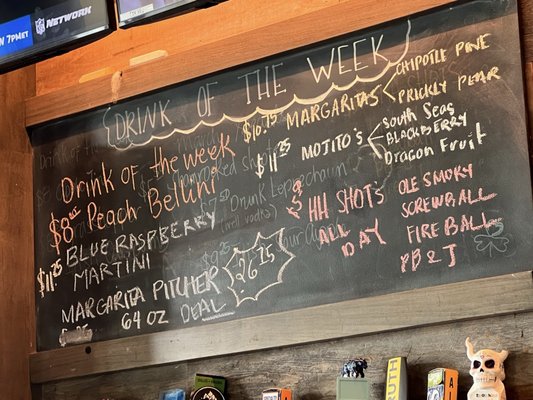 NFL NETWORK
N 7PM ET
DRINK OF THE WEEK
Drink of the week
$8 Peach Bellini
$11.25 BLUE RASPBERRY
MARTINI
MARGARITA PITCHER
64 OZ DEAL
26.25
$10.75 MARGARITAS
CHIPOTLE PINE
PRICKLY PEAR
$11.25 MOJITO'S
South Seas
BLACKBERRY
Dragon Fruit
Drunk Leprechaun
(well vodka)
$5 HH SHOTS
ALL DAY
OLE SMOKY
SCREWBALL
FIREBALL
PB & J
TRUTH
A